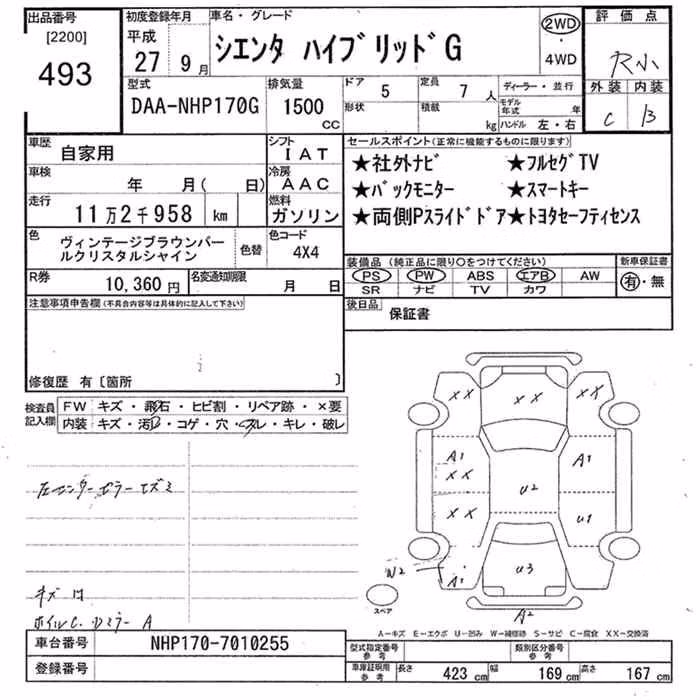 出品番号 初度登録年月 車名・グレード 評価点
[2200] 平成 シエンタ ハイブリッドG 2WD ・ 4WD R小
493 27年9月
型式 排気量 ドア 5 定員 7人 ディーラー・並行 外装 内装
DAA-NHP170G 1500cc 形状 積載 kg モデル年式 年 ハンドル 左・右 C B
車歴 自家用 シフト IAT セールスポイント(正常に機能するものに限ります)
車検 年 月(日) 冷房 AAC ★社外ナビ ★フルセグTV
走行 11万2千958 km 燃料 ガソリン ★バックモニター ★スマートキー
★両側Pスライドドア★トヨタセーフティセンス
色 ヴィンテージブラウンパールクリスタルシャイン 色替 色コード 4X4
装備品(純正品に限り〇をつけてください) 新車保証書
PS PW ABS エアB AW 有・無
SR ナビ TV カワ
R券 10,360円 名変通知期限 月 日
後日品 保証書
注意事項申告欄(不具合内容等は具体的に記入して下さい)
修復歴 有〔箇所 〕
検査員記入欄 FW キズ・飛石・ヒビ割・リペア跡・×要
内装 キズ・汚・コゲ・穴・スレ・キレ・破レ
左センターピラーエズミ
キズ
ホイルC.Dミラー A
XX XX XX
A1 A1
XX
U2
XX U1
W2 U3
A1
A2
スペア
A－キズ E－エクボ U－凹み W－補修跡 S－サビ C－腐食 XX－交換済
車台番号 NHP170-7010255 型式指定番号 参考 類別区分番号 参考
登録番号 車庫証明用 参考 長さ 423cm 幅 169cm 高さ 167cm